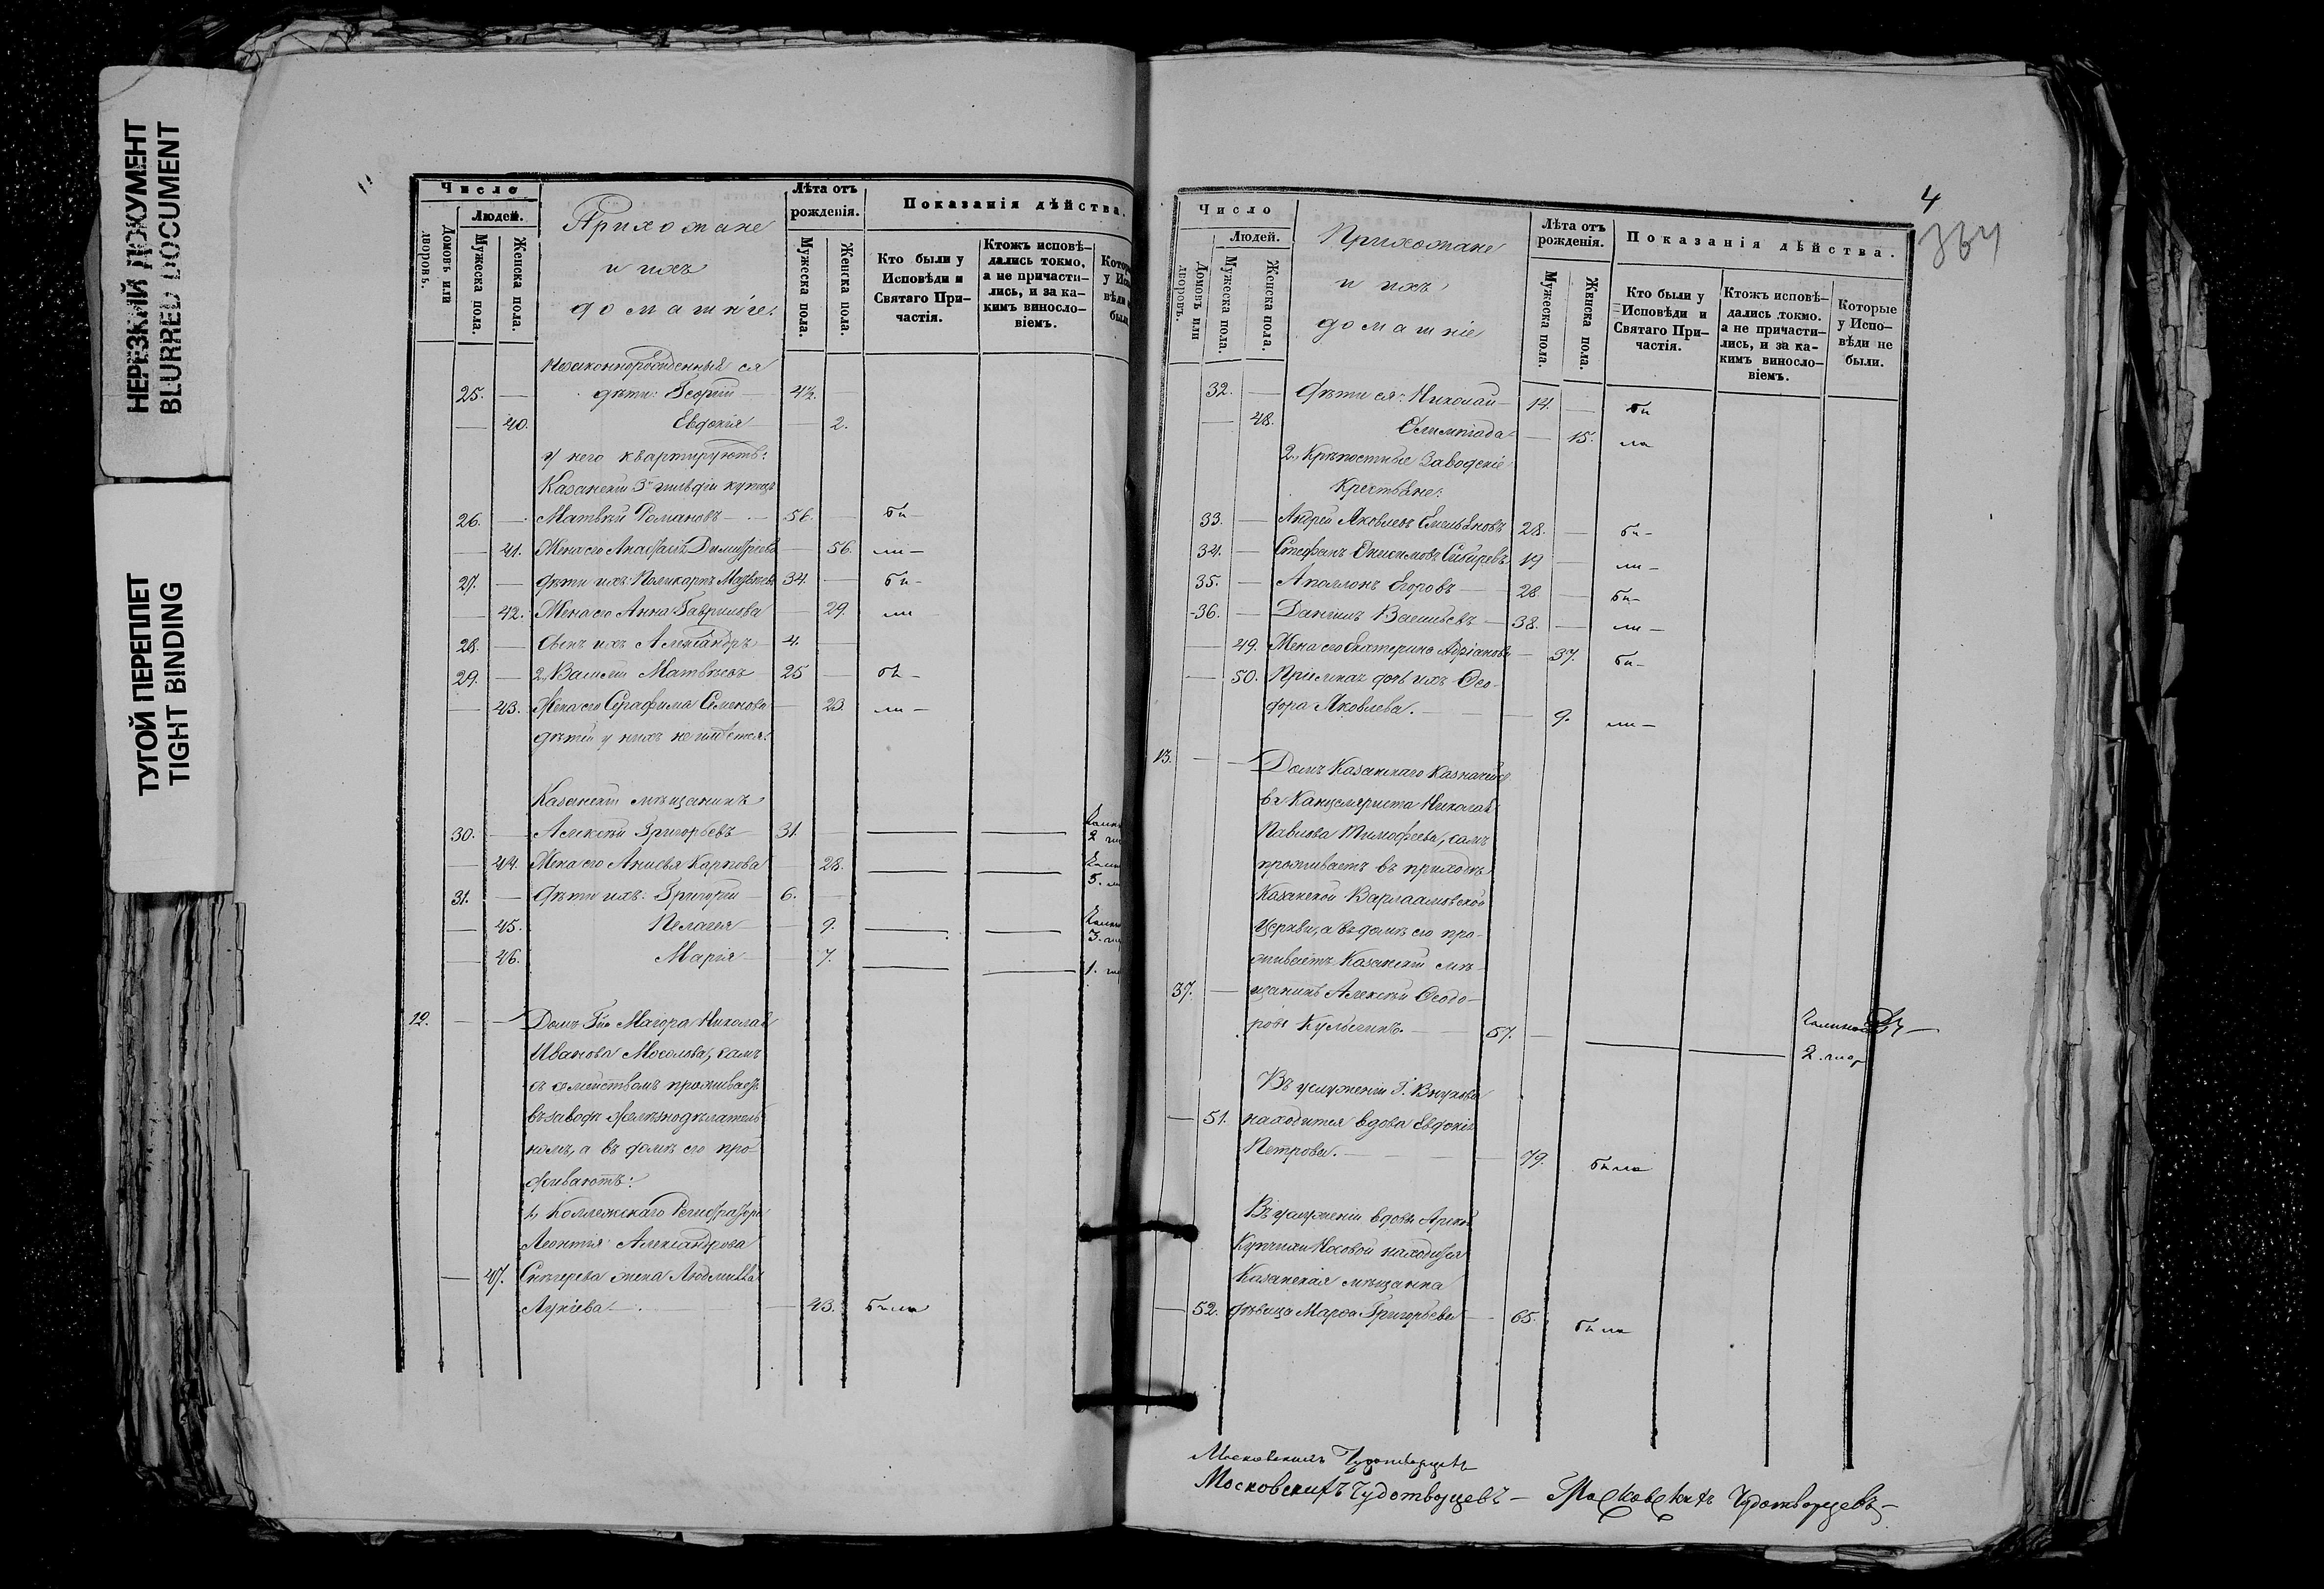 НЕРЕЗКИЙ ДОКУМЕНТ
BLURRED DOCUMENT
ТУГОЙ ПЕРЕПЛЕТ
TIGHT BINDING
Число
Людей.
Домовъ или дворовъ.
Мужеска пола.
Женска пола.
Прихожане
и ихъ
домашніе.
Лѣта отъ рожденія.
Мужеска пола.
Женска пола.
Показанія дѣйства.
Кто были у Исповѣди и Святаго Причастія.
Ктожъ исповѣдались токмо, а не причастились, и за какимъ винословіемъ.
Незаконнорожденныя ея
25. — дѣти: Георгій — 4½.
— 40. Евдокія — 2.
У него квартируютъ:
Казанскій 3й гильдіи купецъ
26. — Матвѣй Романовъ — 56. — бы—
— 41. Жена его Анастасія Димитріева — 56. ли—
27. — Дѣти ихъ: Поликарпъ Матвѣевъ 34. — бы—
— 42. Жена его Анна Гаврилова — 29. ли
28. — Сынъ ихъ Александръ 4. —
29. — 2, Василій Матвѣевъ 25 — бы—
— 43. Жена его Серафима Семенова — 23 ли—
дѣтей у нихъ не имѣется.
Казанскій мѣщанинъ
30. — Алексѣй Григорьевъ 31. —
— 44. Жена его Анисья Карпова — 28.
31. — Дѣти ихъ: Григорій — 6. —
— 45. Пелагея — 9.
— 46. Марія — 7.
12. — — Домъ Гна Маіора Николая
Иванова Мосолова, самъ
съ семействомъ проживаетъ
въ заводѣ желѣзнодѣлатель
номъ, а въ домѣ его про
живаютъ:
1, Коллежскаго Регистратора
Леонтія Александрова
— 47. Снѣгерева жена Людмилла
Лукіева. — 43. была
4
364
Число
Людей.
Домовъ или дворовъ.
Мужеска пола.
Женска пола.
Прихожане
и ихъ
домашніе
Лѣта отъ рожденія.
Мужеска пола.
Женска пола.
Показанія дѣйства.
Кто были у Исповѣди и Святаго Причастія.
Ктожъ исповѣдались токмо. а не причастились, и за какимъ винословіемъ.
Которые у Исповѣди не были.
32. — Дѣти ея: Николай — 14. — бы
— 48. Олимпіада — 15. ли
2, Крѣпостные Заводскіе
Крестьяне:
33. — Андрей Яковлевъ Емельяновъ 28. — бы—
34. — Стефанъ Онисимовъ Сибиревъ 19 — ли—
35. — Аполлонъ Егоровъ — 28. — бы—
36. — Даніилъ Васильевъ — 38. — ли—
— 49. Жена его Екатерина Адріанова — 37. бы—
— 50. Пріемная дочь ихъ Ѳео-
дора Яковлева. — 9. ли—
13. — — Домъ Казанскаго Казначейст
ва Канцеляриста Николая
Павлова Тимофеева, самъ
проживаетъ въ приходѣ
Казанской Варлаамовской
Церкви, а въ домѣ его про-
живаетъ Казанскій мѣ-
37. — щанинъ Алексѣй Ѳеодо-
ровъ — 57. —
Въ услуженіи Г.
— 51. находится вдова Евдокія
Петрова. — 79. была
Въ услуженіи вдовы Арской
Купчихи Носовой находится
Казанская мѣщанка
— 52. дѣвица Марѳа Григорьева — 65. была
Московскихъ Чудотворцевъ
Московскихъ Чудотворцевъ — Московскихъ Чудотворцевъ —